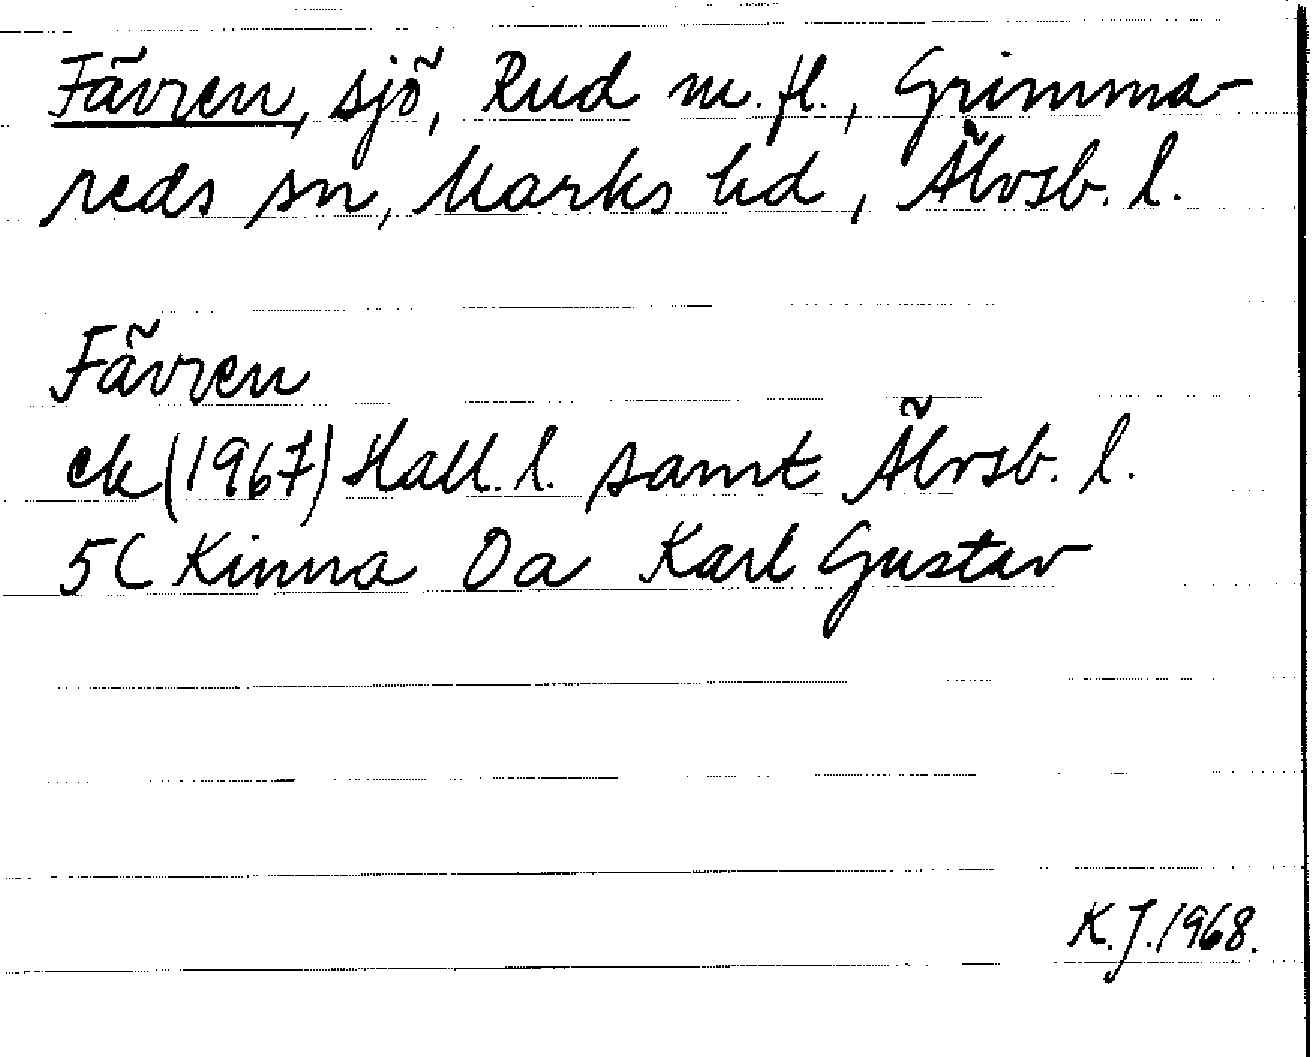 Fävren, sjö, Rud m. fl., Grimma-
reds sn, Marks hd, Älvsb. l.
Fävren
ek (1967) Hall. l. samt Älvsb. l.
5C Kinna 0a Karl Gustav
K. J. 1968.